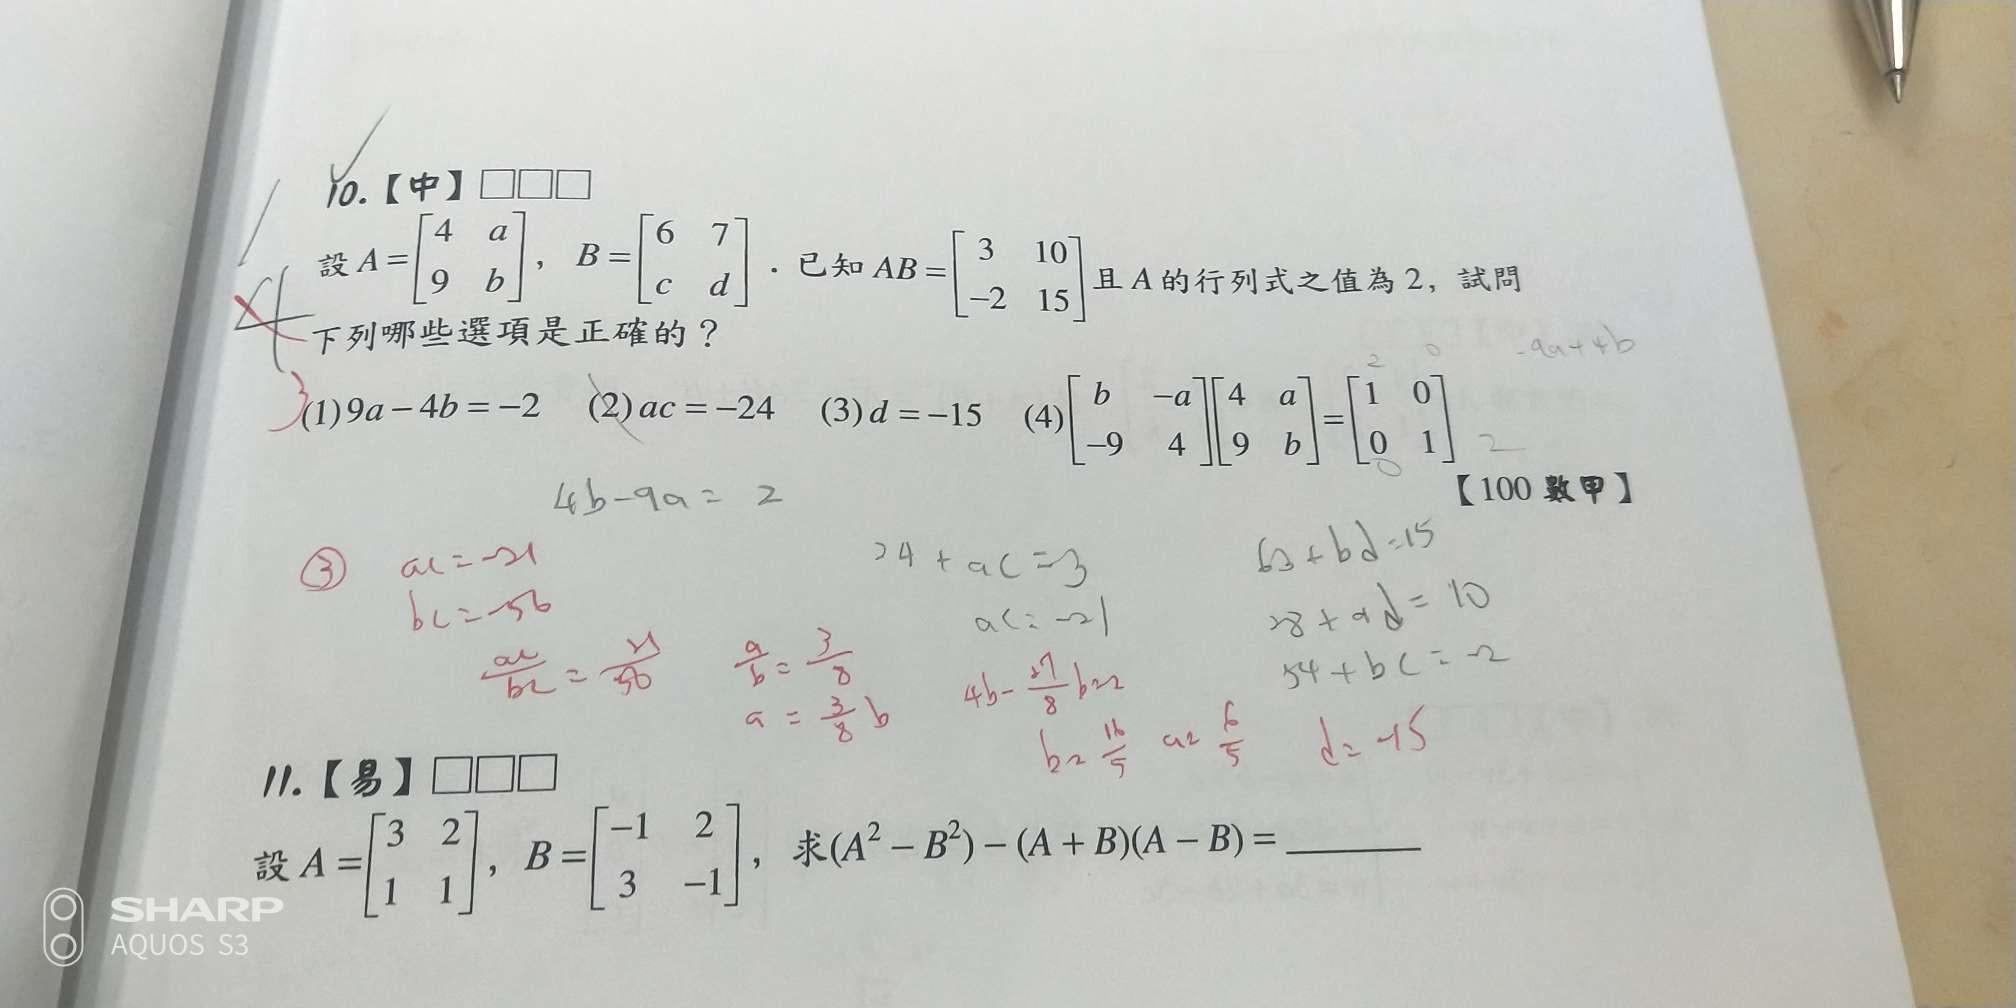 10.【中】□□□
設 A = [4 a; 9 b], B = [6 7; c d]. 已知 AB = [3 10; -2 15] 且 A 的行列式之值為 2, 試問
下列哪些選項是正確的?
-9a+4b
2 0
3 (1) 9a - 4b = -2 (2) ac = -24 (3) d = -15 (4) [b -a; -9 4][4 a; 9 b] = [1 0; 0 1]
0 2
【100 數甲】
4b-9a= 2
③ ac=-21
bc=-56
ac/bc = 21/56
a/b = 3/8
a = 3/8 b
24+ac=3
ac=-21
4b-27/8 b=2
b=16/5 a=6/5 d=-15
63+bd=15
28+ad=10
54+bc=-2
11.【易】□□□
設 A = [3 2; 1 1], B = [-1 2; 3 -1], 求(A² - B²) - (A + B)(A - B) = ______
SHARP
AQUOS S3